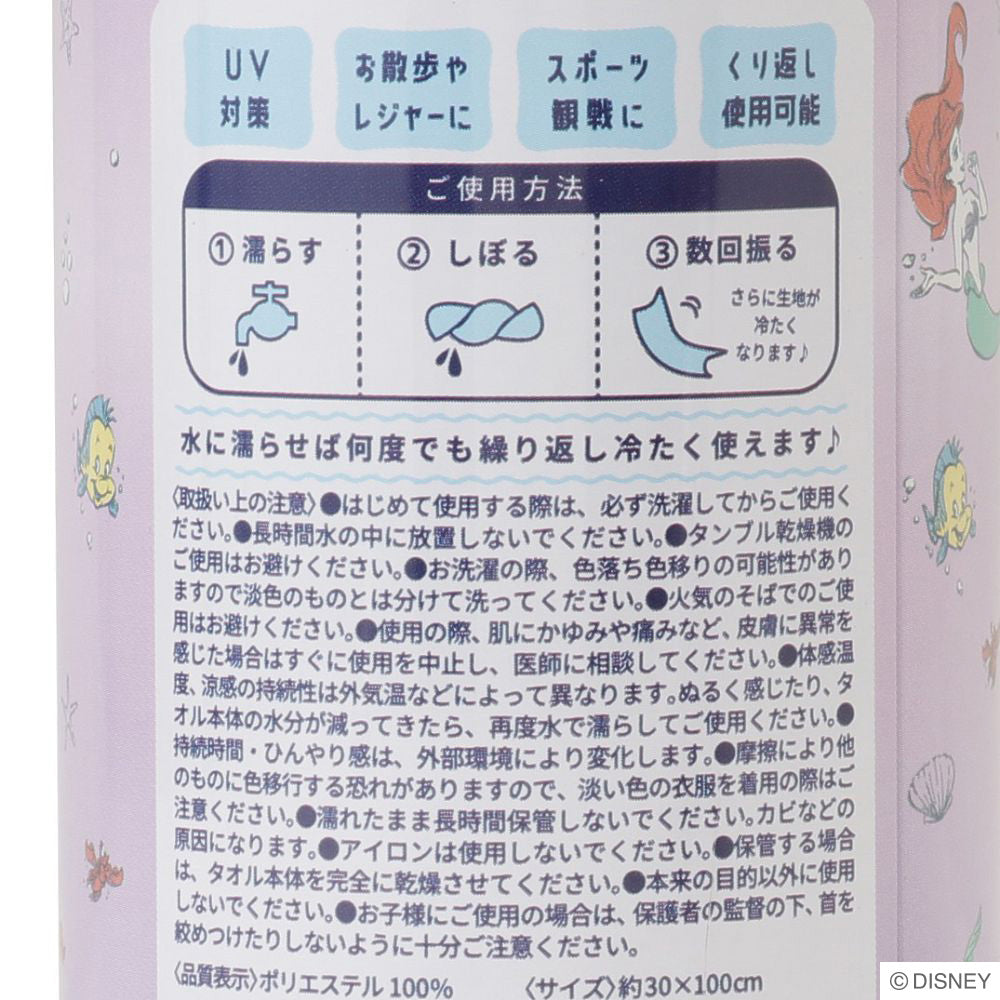 UV
対策
お散歩や
レジャーに
スポーツ
観戦に
くり返し
使用可能
ご使用方法
①濡らす
②しぼる
③数回振る
さらに生地が
冷たく
なります♪
水に濡らせば何度でも繰り返し冷たく使えます♪
〈取扱い上の注意〉●はじめて使用する際は、必ず洗濯してからご使用く
ださい。●長時間水の中に放置しないでください。●タンブル乾燥機の
ご使用はお避けください。●お洗濯の際、色落ち色移りの可能性があり
ますので淡色のものとは分けて洗ってください。●火気のそばでのご使
用はお避けください。●使用の際、肌にかゆみや痛みなど、皮膚に異常を
感じた場合はすぐに使用を中止し、医師に相談してください。●体感温
度、涼感の持続性は外気温などによって異なります。ぬるく感じたり、タ
オル本体の水分が減ってきたら、再度水で濡らしてご使用ください。●
持続時間・ひんやり感は、外部環境により変化します。●摩擦により他
のものに色移行する恐れがありますので、淡い色の衣服を着用の際はご
注意ください。●濡れたまま長時間保管しないでください。カビなどの
原因になります。●アイロンは使用しないでください。●保管する場合
は、タオル本体を完全に乾燥させてください。●本来の目的以外に使用
しないでください。●お子様にご使用の場合は、保護者の監督の下、首を
絞めつけたりしないように十分ご注意ください。
〈品質表示〉ポリエステル100% 〈サイズ〉約30×100cm
© DISNEY